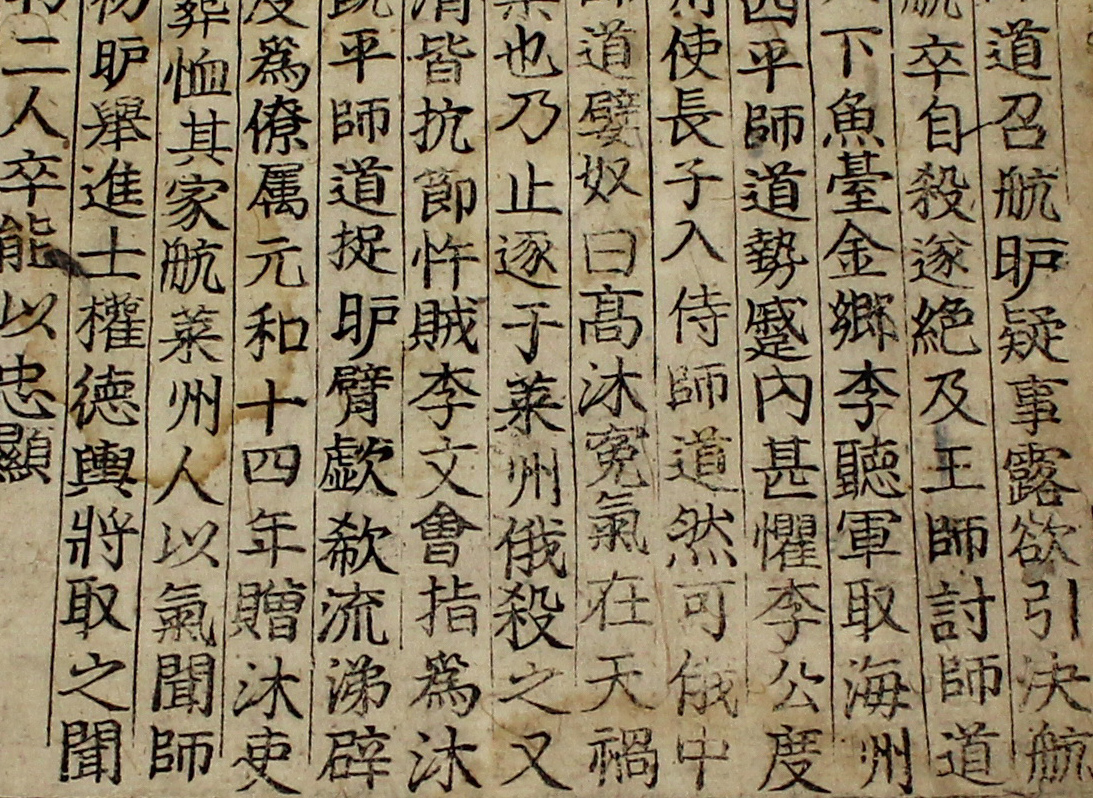 道召航昈疑事露欲引決航
航卒自殺遂絕及王師討師道
下魚臺金鄉李聽軍取海州
四平師道勢蹙內甚懼李公度
使長子入侍師道然可俄中
道嬖奴曰高沐冤氣在天禍
也乃止逐于萊州俄殺之又
皆抗節忤賊李文會指為沐
平師道捉昈臂歔欷流涕辟
為僚属元和十四年贈沐吏
葬恤其家航萊州人以氣聞師
初昈舉進士權德輿將取之聞
二人卒能以忠顯